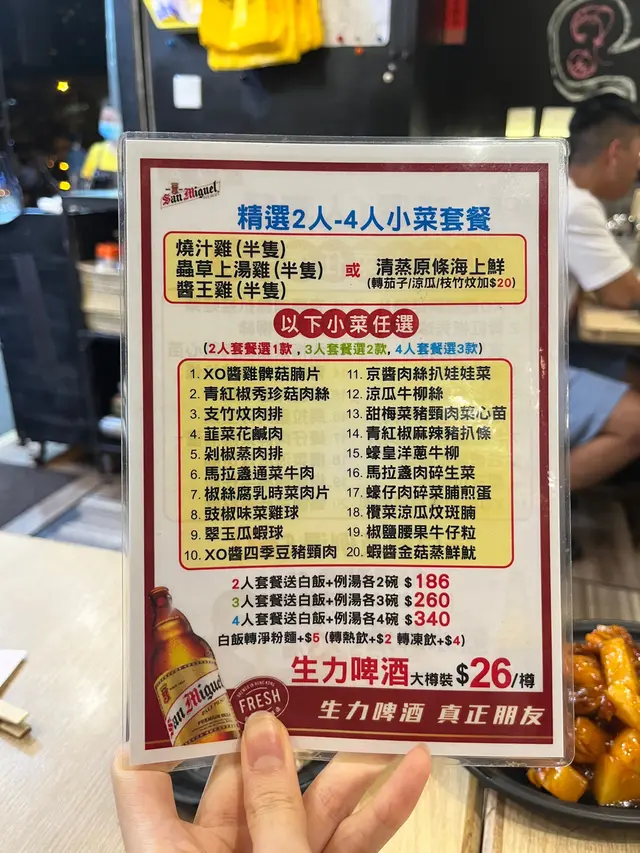 San Miguel
精選2人-4人小菜套餐
燒汁雞(半隻)
蟲草上湯雞(半隻)
醬王雞(半隻)
或
清蒸原條海上鮮
(轉茄子/涼瓜/枝竹炆加$20)
以下小菜任選
(2人套餐選1款 , 3人套餐選2款, 4人套餐選3款)
1. XO醬雞髀菇腩片
2. 青紅椒秀珍菇肉絲
3. 支竹炆肉排
4. 韮菜花鹹肉
5. 剁椒蒸肉排
6. 馬拉盞通菜牛肉
7. 椒絲腐乳時菜肉片
8. 豉椒味菜雞球
9. 翠玉瓜蝦球
10. XO醬四季豆豬頸肉
11. 京醬肉絲扒娃娃菜
12. 涼瓜牛柳絲
13. 甜梅菜豬頸肉菜心苗
14. 青紅椒麻辣豬扒條
15. 蠔皇洋蔥牛柳
16. 馬拉盞肉碎生菜
17. 蠔仔肉碎菜脯煎蛋
18. 欖菜涼瓜炆斑腩
19. 椒鹽腰果牛仔粒
20. 蝦醬金菇蒸鮮魷
2人套餐送白飯+例湯各2碗 $186
3人套餐送白飯+例湯各3碗 $260
4人套餐送白飯+例湯各4碗 $340
白飯轉淨粉麵+$5 (轉熱飲+$2 轉凍飲+$4)
生力啤酒 大樽裝 $26/樽
San Miguel
FRESH
生力啤酒 真正朋友